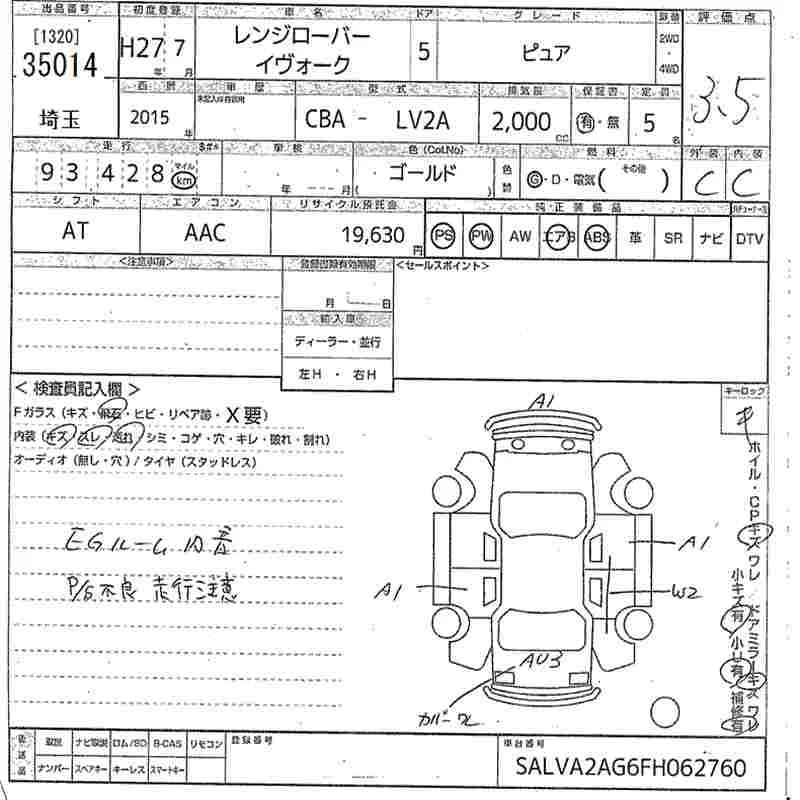 出品番号 初度登録 車名 ドア グレード 駆動 評価点
[1320]
35014 H27 7 レンジローバー イヴォーク 5 ピュア 2WD・4WD 3.5
年 月
西暦 車歴 型式 排気量 保証書 定員
埼玉 2015年 CBA - LV2A 2,000cc 有・無 5名
走行 車検 色(Col.No) 燃料 外装 内装
93428 マイル km 年 月 ゴールド ( ) 色替 G・D・電気( その他 ) C C
シフト エアコン リサイクル預託金 純正装備品
AT AAC 19,630円 PS PW AW エアB ABS 革 SR ナビ DTV
<注意事項> 登録書類有効期限 <セールスポイント>
月 日
輸入車
ディーラー・並行
左H ・ 右H
< 検査員記入欄 > キーロック
Fガラス(キズ・飛石・ヒビ・リペア跡・X要)
内装(キズ・スレ・汚れ・シミ・コゲ・穴・キレ・破れ・割れ)
オーディオ(無し・穴)/タイヤ(スタッドレス)
EGルーム内音
P/S不良 走行注意
A1
A1
A1
W2
AU3
カバーワレ
ホイル・CPキズワレ ドアミラーキズワレ
小キズ有・小U有・補修有
後送品 取説 ナビ取説 ロム/SD B-CAS リモコン 登録番号 車台番号
ナンバー スペアキー キーレス スマートキー SALVA2AG6FH062760